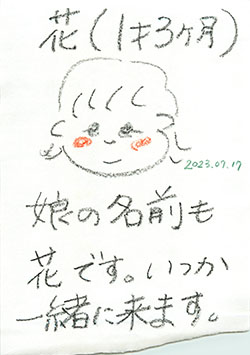 花(1才3ヶ月)
2023.09.17
娘の名前も
花です。いつか
一緒に来ます。